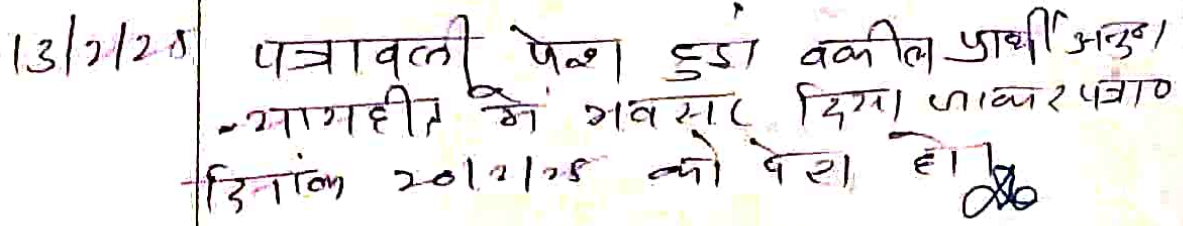 13/2/25 पत्रावली पेश हुई। वकील प्रार्थी अनु०।
न्यायहीत में अवसर दिया जाकर पत्रा०
दिनांक 20/2/25 को पेश हो।